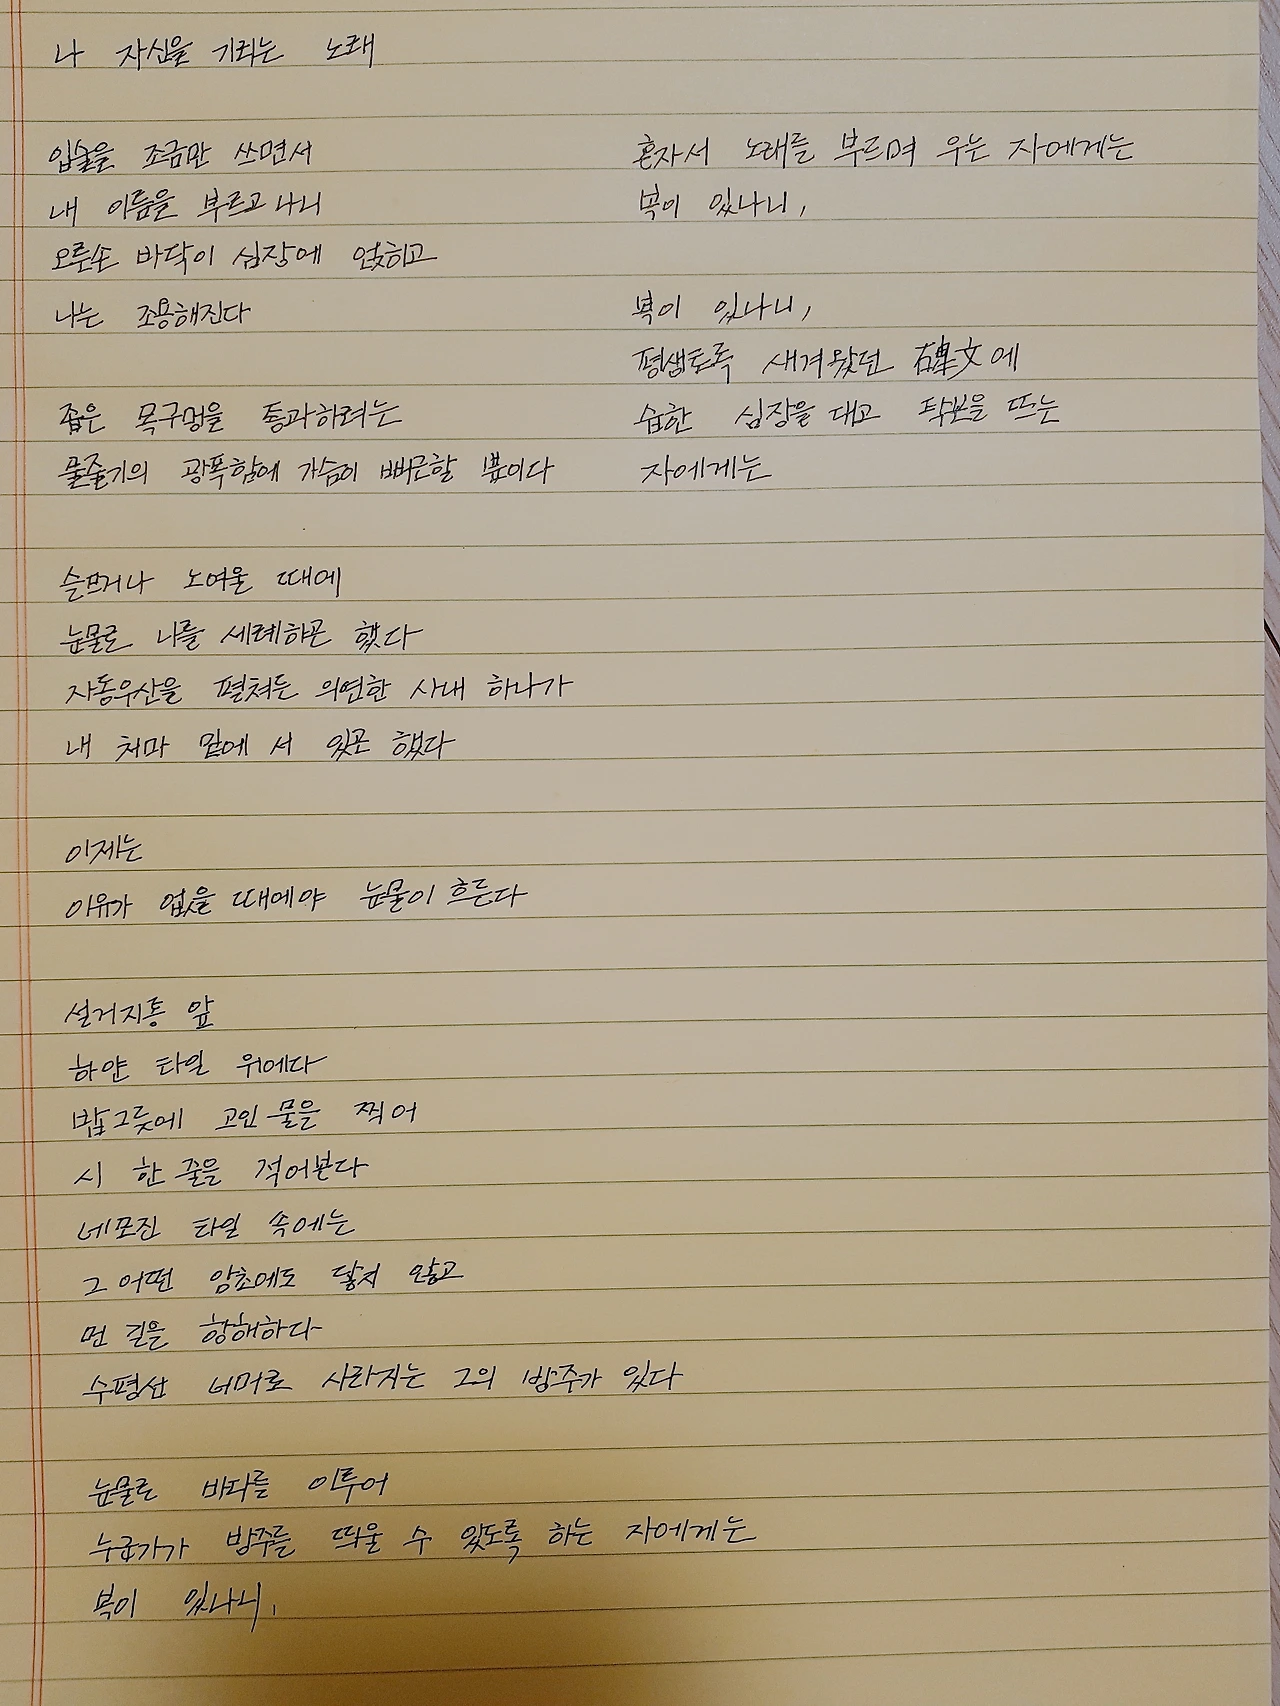 나 자신을 기리는 노래
입술을 조금만 쓰면서
내 이름을 부르고 나니
오른손 바닥이 심장에 얹히고
나는 조용해진다
좁은 목구멍을 통과하려는
물줄기의 광폭함에 가슴이 뻐근할 뿐이다
슬프거나 노여울 때에
눈물로 나를 세례하곤 했다
자동우산을 펼쳐든 의연한 사내 하나가
내 처마 밑에 서 있곤 했다
이제는
이유가 없을 때에야 눈물이 흐른다
설거지통 앞
하얀 타일 위에다
밥그릇에 고인 물을 찍어
시 한 줄을 적어본다
네모진 타일 속에는
그 어떤 암초에도 닿지 않고
먼 길을 항해하다
수평선 너머로 사라지는 그의 방주가 있다
눈물로 바다를 이루어
누군가가 방주를 띄울 수 있도록 하는 자에게는
복이 있나니,
혼자서 노래를 부르며 우는 자에게는
복이 있나니,
복이 있나니,
평생토록 새겨왔던 碑文에
습한 심장을 대고 탁본을 뜨는
자에게는